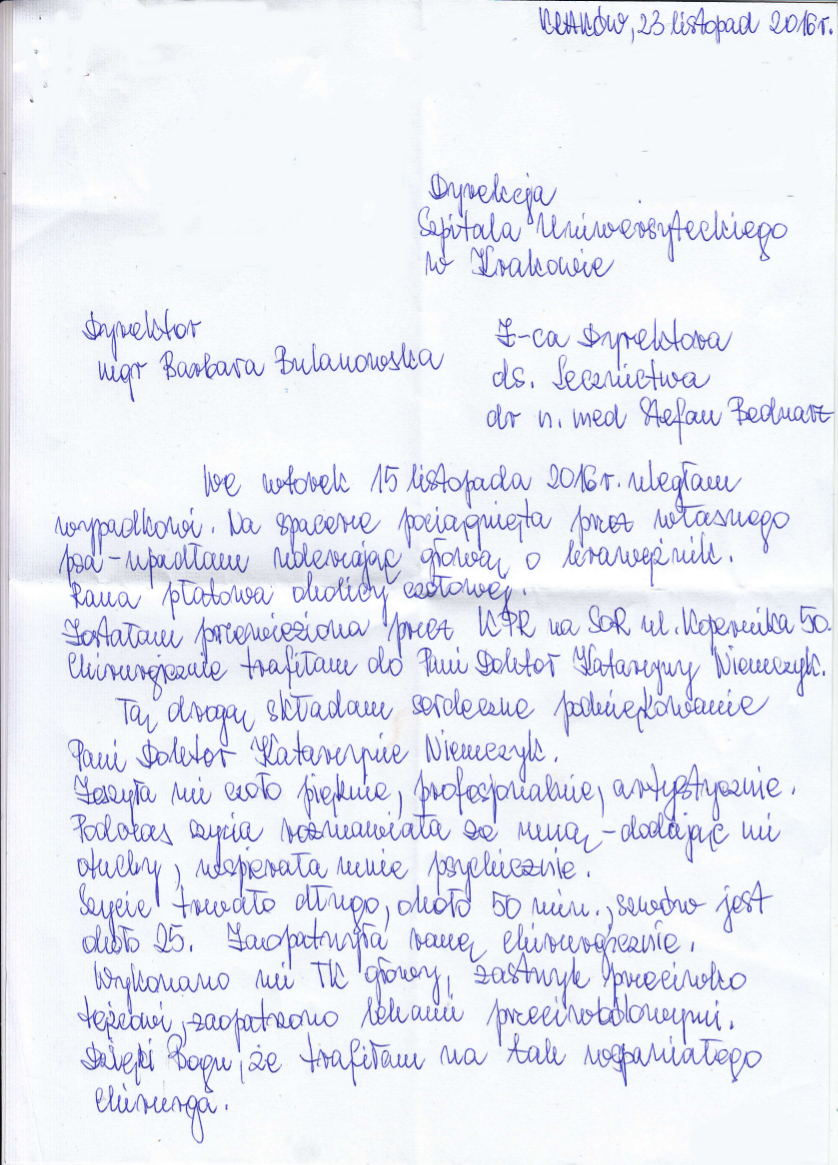 KRAKÓW, 23 listopad 2016r.
Dyrekcja
Szpitala Uniwersyteckiego
w Krakowie
Dyrektor
mgr Barbara Bulanowska
Z-ca Dyrektora
ds. Lecznictwa
dr n. med Stefan Bednarz
We wtorek 15 listopada 2016r. uległam
wypadkowi. Na spacerze pociągnięta przez własnego
psa - upadłam uderzając głową o krawężnik.
Rana płatowa okolicy czołowej.
Zostałam przewieziona przez KPR na SOR ul. Kopernika 50.
Chirurgicznie trafiłam do Pani Doktor Katarzyny Niemczyk.
Tą drogą składam serdeczne podziękowanie
Pani Doktor Katarzynie Niemczyk.
Zeszyła mi czoło pięknie, profesjonalnie, artystycznie.
Podczas szycia rozmawiała ze mną - dodając mi
otuchy, wspierała mnie psychicznie.
Szycie trwało długo, około 50 min., szwów jest
około 25. Zaopatrzyła ranę chirurgicznie.
Wykonano mi TK głowy, zastrzyk przeciwko
tężcowi, zaopatrzono lekami przeciwbólowymi.
Dzięki Bogu, że trafiłam na tak wspaniałego
chirurga.